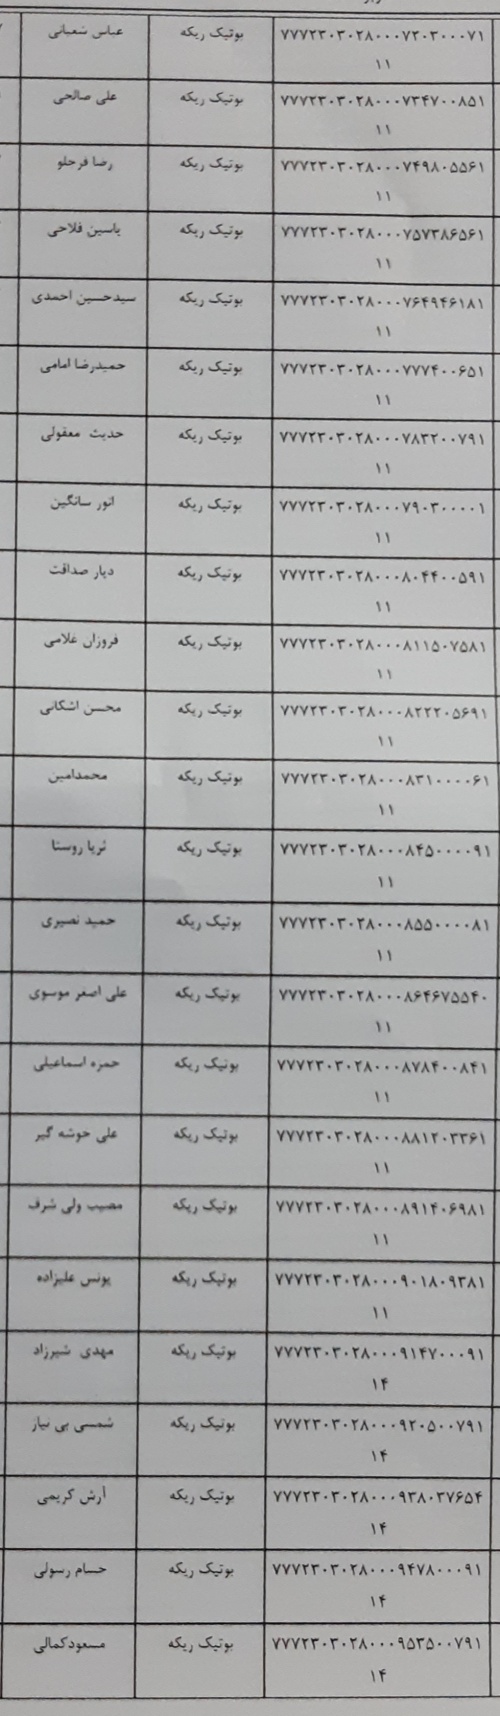 ۷۷۷۲۳۰۳۰۲۸۰۰۰۷۳۰۳۰۰۰۷۱ بوتیک ریکه عباس شعبانی
۱۱
۷۷۷۲۳۰۳۰۲۸۰۰۰۷۳۴۷۰۰۸۵۱ بوتیک ریکه علی صالحی
۱۱
۷۷۷۲۳۰۳۰۲۸۰۰۰۷۴۹۸۰۵۵۶۱ بوتیک ریکه رضا فرحلو
۱۱
۷۷۷۲۳۰۳۰۲۸۰۰۰۷۵۷۳۸۶۵۶۱ بوتیک ریکه یاسین فلاحی
۱۱
۷۷۷۲۳۰۳۰۲۸۰۰۰۷۶۴۹۴۶۱۸۱ بوتیک ریکه سیدحسین احمدی
۱۱
۷۷۷۲۳۰۳۰۲۸۰۰۰۷۷۷۴۰۰۶۵۱ بوتیک ریکه حمیدرضا امامی
۱۱
۷۷۷۲۳۰۳۰۲۸۰۰۰۷۸۳۲۰۰۷۹۱ بوتیک ریکه حدیث معقولی
۱۱
۷۷۷۲۳۰۳۰۲۸۰۰۰۷۹۰۳۰۰۰۰۱ بوتیک ریکه انور سانگین
۱۱
۷۷۷۲۳۰۳۰۲۸۰۰۰۸۰۴۴۰۰۵۹۱ بوتیک ریکه دیار صداقت
۱۱
۷۷۷۲۳۰۳۰۲۸۰۰۰۸۱۱۵۰۷۵۸۱ بوتیک ریکه فروزان غلامی
۱۱
۷۷۷۲۳۰۳۰۲۸۰۰۰۸۲۲۲۰۵۶۹۱ بوتیک ریکه محسن اشکانی
۱۱
۷۷۷۲۳۰۳۰۲۸۰۰۰۸۳۱۰۰۰۰۶۱ بوتیک ریکه محمدامین
۱۱
۷۷۷۲۳۰۳۰۲۸۰۰۰۸۴۵۰۰۰۰۹۱ بوتیک ریکه ثریا روستا
۱۱
۷۷۷۲۳۰۳۰۲۸۰۰۰۸۵۵۰۰۰۰۸۱ بوتیک ریکه حمید نصیری
۱۱
۷۷۷۲۳۰۳۰۲۸۰۰۰۸۶۴۶۷۵۵۴۰ بوتیک ریکه علی اصغر موسوی
۱۱
۷۷۷۲۳۰۳۰۲۸۰۰۰۸۷۸۴۰۰۸۴۱ بوتیک ریکه حمزه اسماعیلی
۱۱
۷۷۷۲۳۰۳۰۲۸۰۰۰۸۸۱۲۰۳۳۶۱ بوتیک ریکه علی خوشه گیر
۱۱
۷۷۷۲۳۰۳۰۲۸۰۰۰۸۹۱۴۰۶۹۸۱ بوتیک ریکه مصیب ولی شرف
۱۱
۷۷۷۲۳۰۳۰۲۸۰۰۰۹۰۱۸۰۹۳۸۱ بوتیک ریکه یونس علیزاده
۱۱
۷۷۷۲۳۰۳۰۲۸۰۰۰۹۱۴۷۰۰۰۹۱ بوتیک ریکه مهدی شیرزاد
۱۴
۷۷۷۲۳۰۳۰۲۸۰۰۰۹۲۰۵۰۰۷۹۱ بوتیک ریکه شمسی بی نیاز
۱۴
۷۷۷۲۳۰۳۰۲۸۰۰۰۹۳۸۰۳۷۶۵۴ بوتیک ریکه آرش کریمی
۱۴
۷۷۷۲۳۰۳۰۲۸۰۰۰۹۴۷۸۰۰۰۹۱ بوتیک ریکه حسام رسولی
۱۴
۷۷۷۲۳۰۳۰۲۸۰۰۰۹۵۳۵۰۰۷۹۱ بوتیک ریکه مسعودکمالی
۱۴